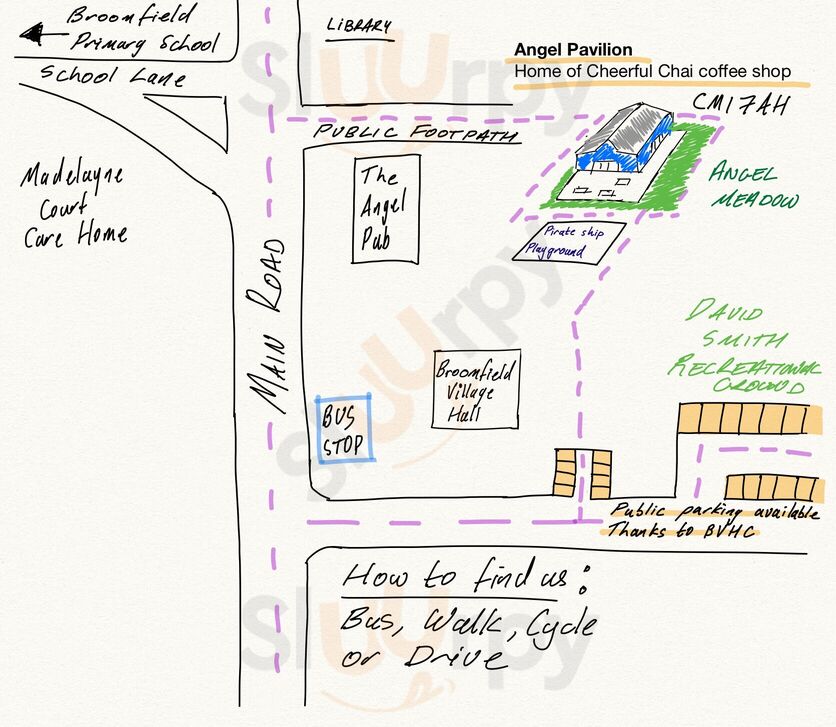 Broomfield
Primary School
School Lane
LIBRARY
Angel Pavilion
Home of Cheerful Chai coffee shop
CM1 7AH
PUBLIC FOOTPATH
Madelayne
Court
Care Home
The
Angel
Pub
ANGEL
MEADOW
Pirate ship
Playground
MAIN ROAD
DAVID
SMITH
RECREATIONAL
GROUND
Broomfield
Village
Hall
BUS
STOP
Public parking available
Thanks to BVHC
How to find us:
Bus, Walk, Cycle
or Drive
Sluurpy
Sluurpy
Sluurpy